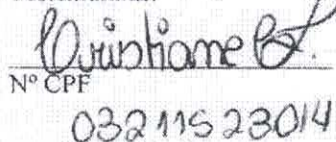 Cristiane
Nº CPF
03211523014